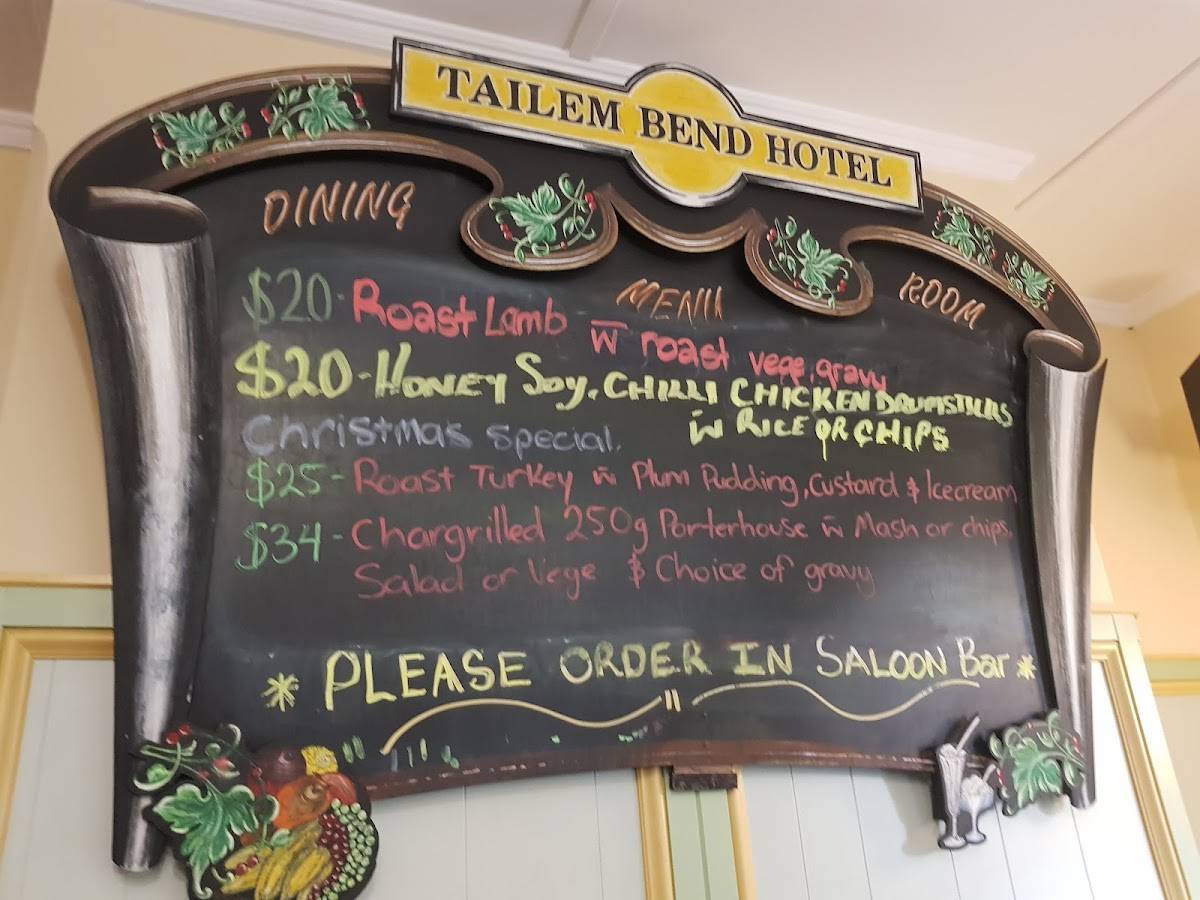 TAILEM BEND HOTEL
DINING MENU ROOM
$20- Roast Lamb - w̄ roast vege, gravy
$20- HONEY Soy, CHILLI CHICKEN DRUMSTICKS
w̄ RICE OR CHIPS
Christmas special.
$25- Roast Turkey w̄ Plum Pudding, Custard & Icecream
$34- Chargrilled 250g Porterhouse w̄ Mash or chips,
Salad or Vege & Choice of gravy
* PLEASE ORDER IN SALOON Bar *